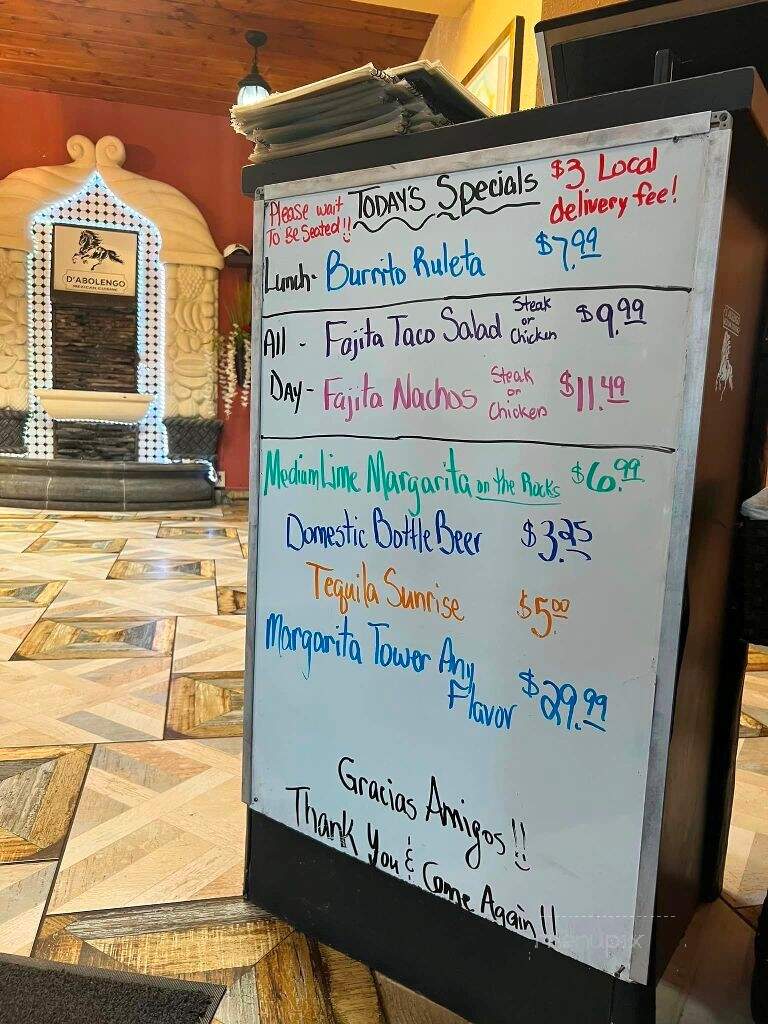 D'ABOLENGO
MEXICAN CUISINE
Please wait
To Be Seated!!
TODAY'S Specials
$3 Local
delivery fee!
Lunch- Burrito Ruleta $7.99
All - Fajita Taco Salad Steak or Chicken $9.99
Day - Fajita Nachos Steak or Chicken $11.49
Medium Lime Margarita on the Rocks $6.99
Domestic Bottle Beer $3.25
Tequila Sunrise $5.00
Margarita Tower Any
Flavor $29.99
Gracias Amigos!!
Thank You & Come Again!!
menupix